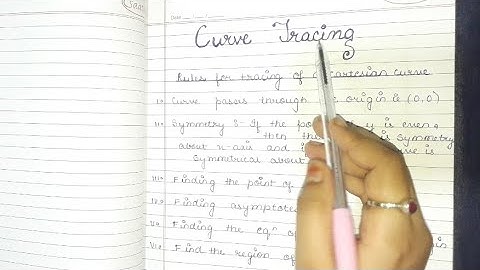 Curve Tracing
Rules for tracing of cartesian curve
Curve passes through origin ie (0,0)
Symmetry :- If the y is even,
then the is symmetry
about x-axis and is
symmetrical about
Finding the point of
Finding asymptotes
Finding the eqⁿ of
Find the region of